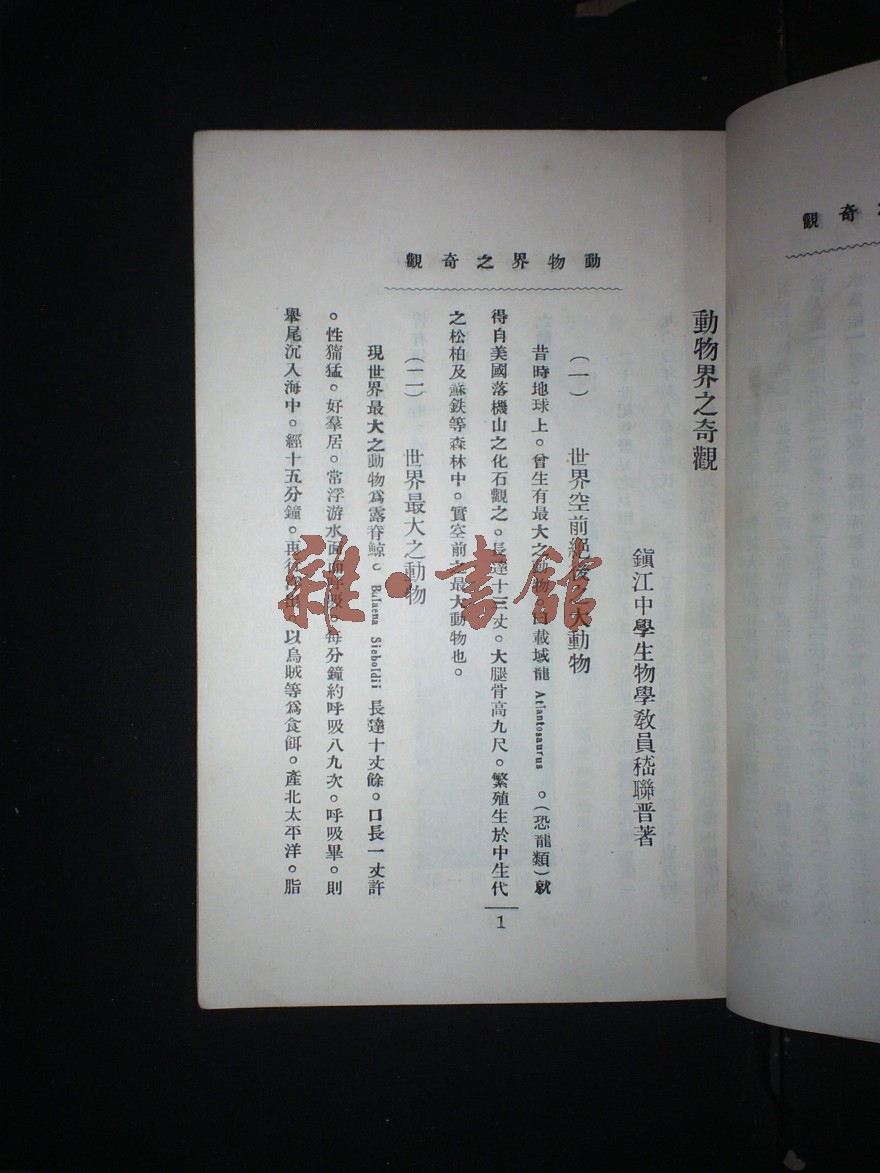 動物界之奇觀
動物界之奇觀
鎮江中學生物學教員嵇聯晋著
（一）　世界空前絕後之大動物
昔時地球上。曾生有最大之動物。曰載域龍 Atlantosaurus 。（恐龍類）就
得自美國落機山之化石觀之。長達十三丈。大腿骨高九尺。繁殖生於中生代
之松柏及蘇鉄等森林中。實空前之最大動物也。
（二）　世界最大之動物
現世界最大之動物爲露脊鯨。Balaena Sieboldii 長達十丈餘。口長一丈許
。性獰猛。好羣居。常浮游水面而呼吸。每分鐘約呼吸八九次。呼吸畢。則
舉尾沉入海中。經十五分鐘。再行浮出。以烏賊等爲食餌。產北太平洋。脂
1
奇觀
雜·書館